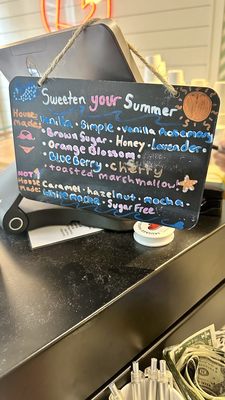 Sweeten your Summer
House made:
Vanilla • Simple • Vanilla Rosemary
Brown Sugar • Honey • Lavender •
Orange Blossom •
Blueberry • cherry
• toasted marshmallow
Not House made:
Caramel • hazelnut • mocha •
white mocha • Sugar Free